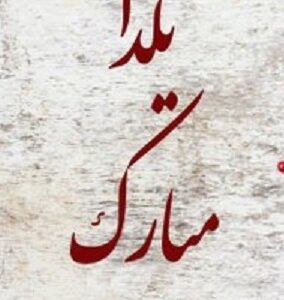 یلدا
مبارک